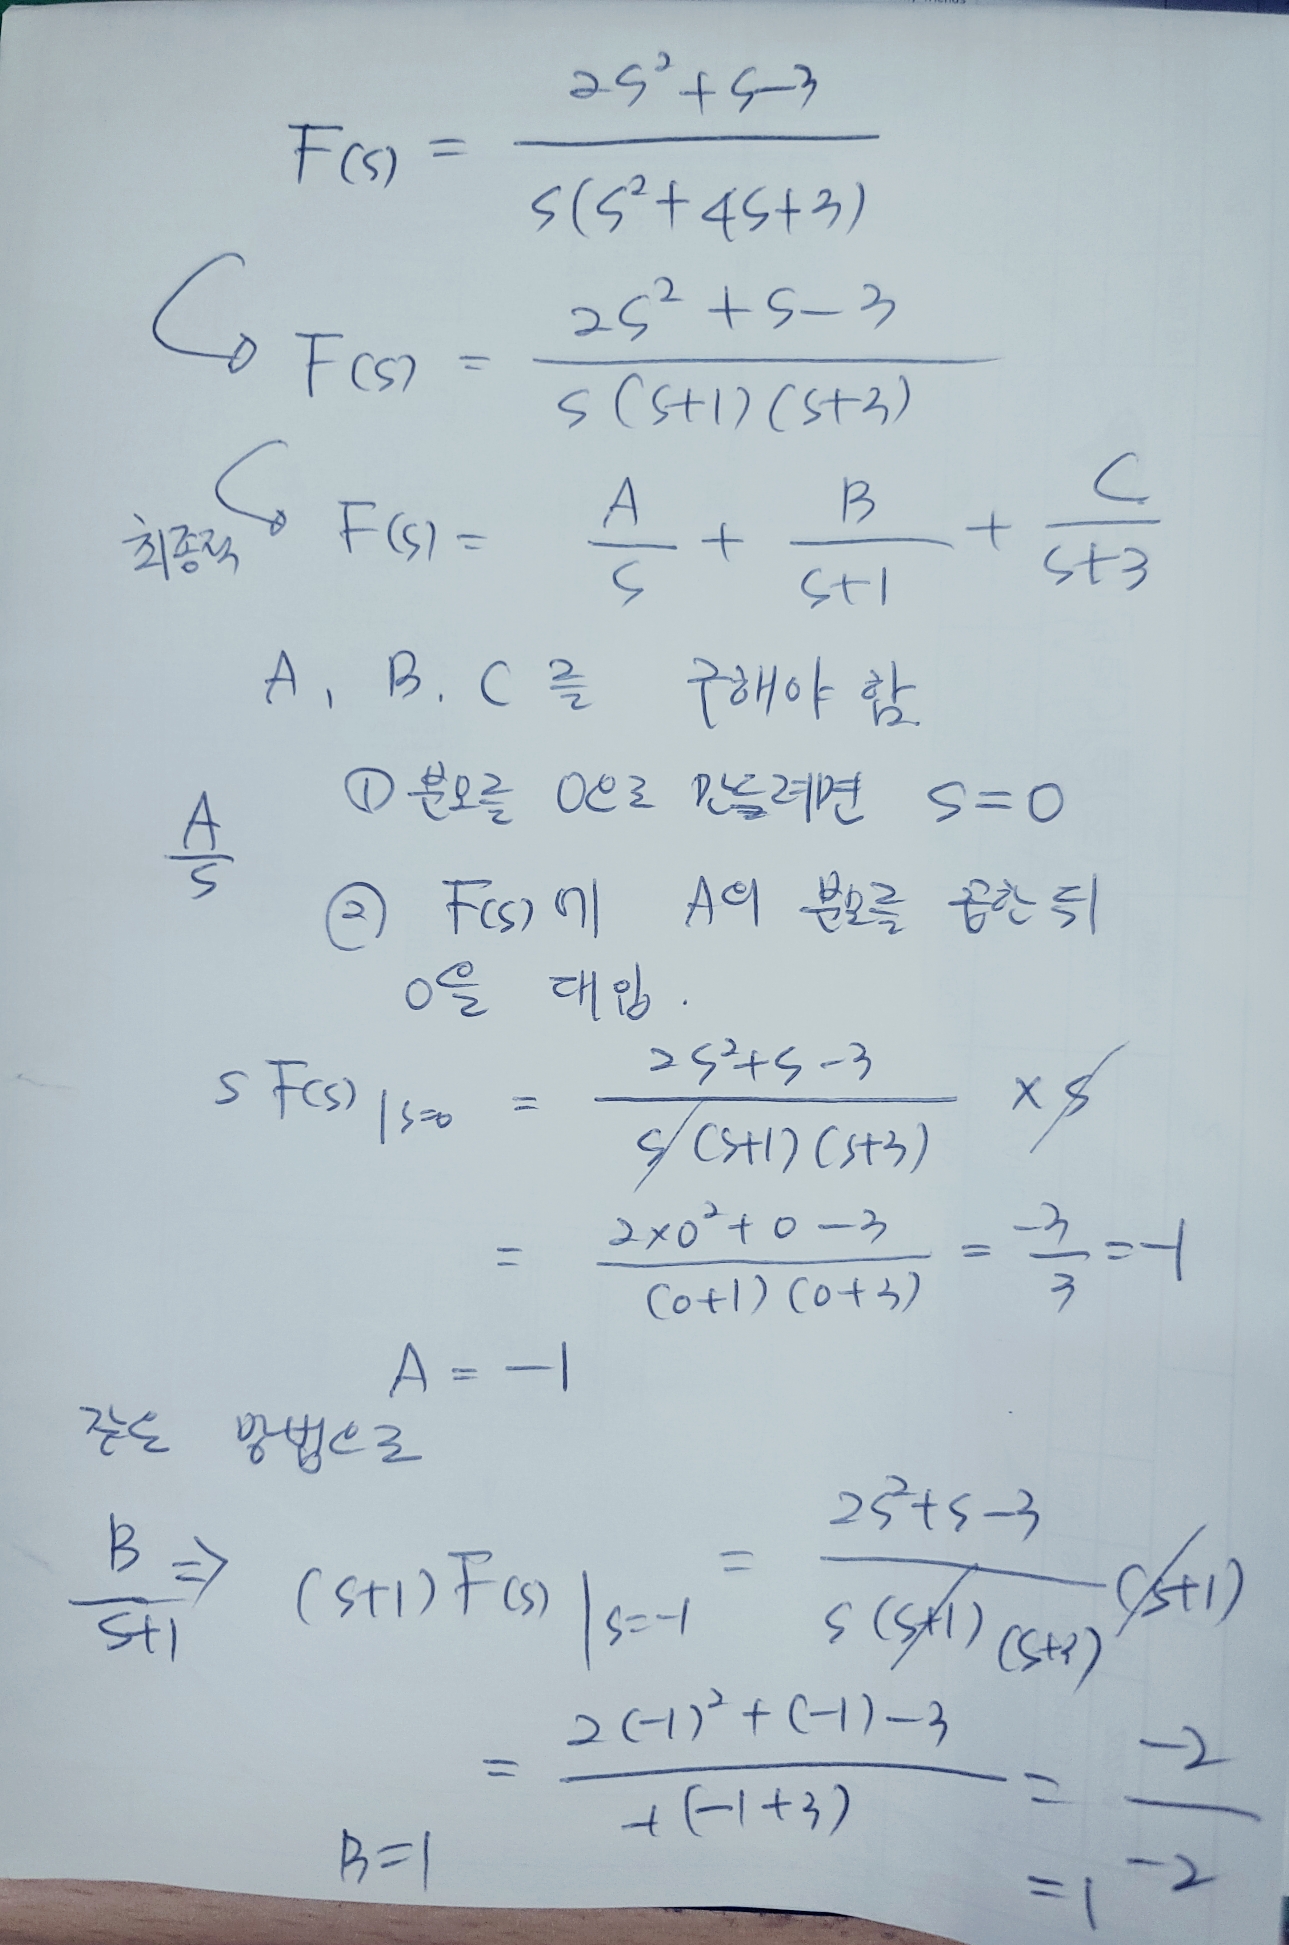 F(s) = 2s²+s-3 / s(s²+4s+3)
F(s) = 2s²+s-3 / s(s+1)(s+3)
최종적 F(s) = A/s + B/s+1 + C/s+3
A, B, C를 구해야 함
A/s ① 분모를 0으로 만들려면 s=0
② F(s)에 A의 분모를 곱한 뒤
0을 대입.
s F(s) |s=0 = 2s²+s-3 / s(s+1)(s+3) × s
= 2×0²+0-3 / (0+1)(0+3) = -3/3 = -1
A = -1
같은 방법으로
B/s+1 ⇒ (s+1)F(s) |s=-1 = 2s²+s-3 / s(s+1)(s+3) (s+1)
= 2(-1)²+(-1)-3 / -1(-1+3) = -2/-2
B=1 =1